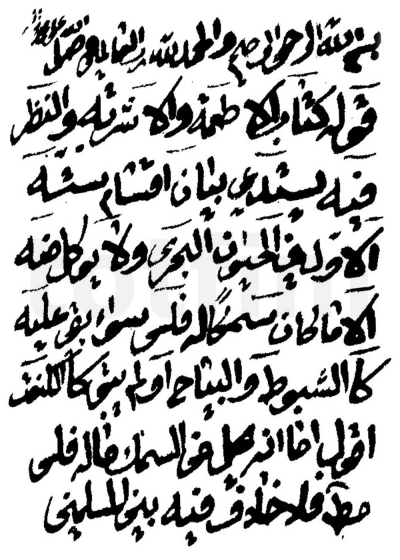 بسم الله الرحمن الرحيم والحمد لله رب العالمين
قوله كتاب الاطعمة والاشربة والنظر
فيه يستدعي بيان اقسام ستة
الاول في الحيوان البحري ولا يوكل منه
الا ما كان سمكا له فلس سواء بقي عليه
كالشبوط والبياح او لم يبق كالكنعت
اقول اما انه يحل من السمك ماله فلس
مط فلا خلاف فيه بين المسلمين